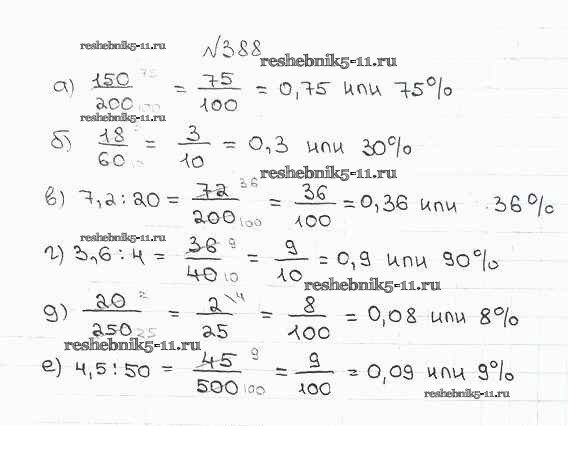 reshebnik5-11.ru
№388
reshebnik5-11.ru
а) 150/200 75 100 = 75/100 = 0,75 или 75%
reshebnik5-11.ru
б) 18/60 = 3/10 = 0,3 или 30%
reshebnik5-11.ru
в) 7,2 : 20 = 72/200 36 100 = 36/100 = 0,36 или 36%
reshebnik5-11.ru
г) 3,6 : 4 = 36/40 9 10 = 9/10 = 0,9 или 90%
reshebnik5-11.ru
д) 20/250 2 25 = 2/25 \4 = 8/100 = 0,08 или 8%
reshebnik5-11.ru
е) 4,5 : 50 = 45/500 9 100 = 9/100 = 0,09 или 9%
reshebnik5-11.ru